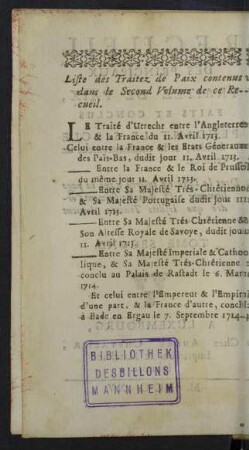 Liste des Traitez de Paix contenus
dans le Second Volume de ce Re-
cueil.
LE Traité d'Utrecht entre l'Angleterre
& la France du 11. Avril 1713.
Celui entre la France & les Etats Généraux
des Païs-Bas, dudit jour 11. Avril 1713.
Entre la France & le Roi de Prusse
du même jour 11. Avril 1713.
Entre Sa Majesté Trés-Chrétienne
& Sa Majesté Portugaise dudit jour 11
Avril 1713.
Entre Sa Majesté Trés-Chrétienne &
Son Altesse Royale de Savoye, dudit jour
11. Avril 1713.
Entre Sa Majesté Imperiale & Catho-
lique, & Sa Majesté Trés-Chrétienne
conclu au Palais de Rastadt le 6. Mars
1714.
Et celui entre l'Empereur & l'Empire
d'une part, & la France d'autre, conclu
à Bade en Ergau le 7. Septembre 1714.
BIBLIOTHEK
DESBILLONS
MANNHEIM